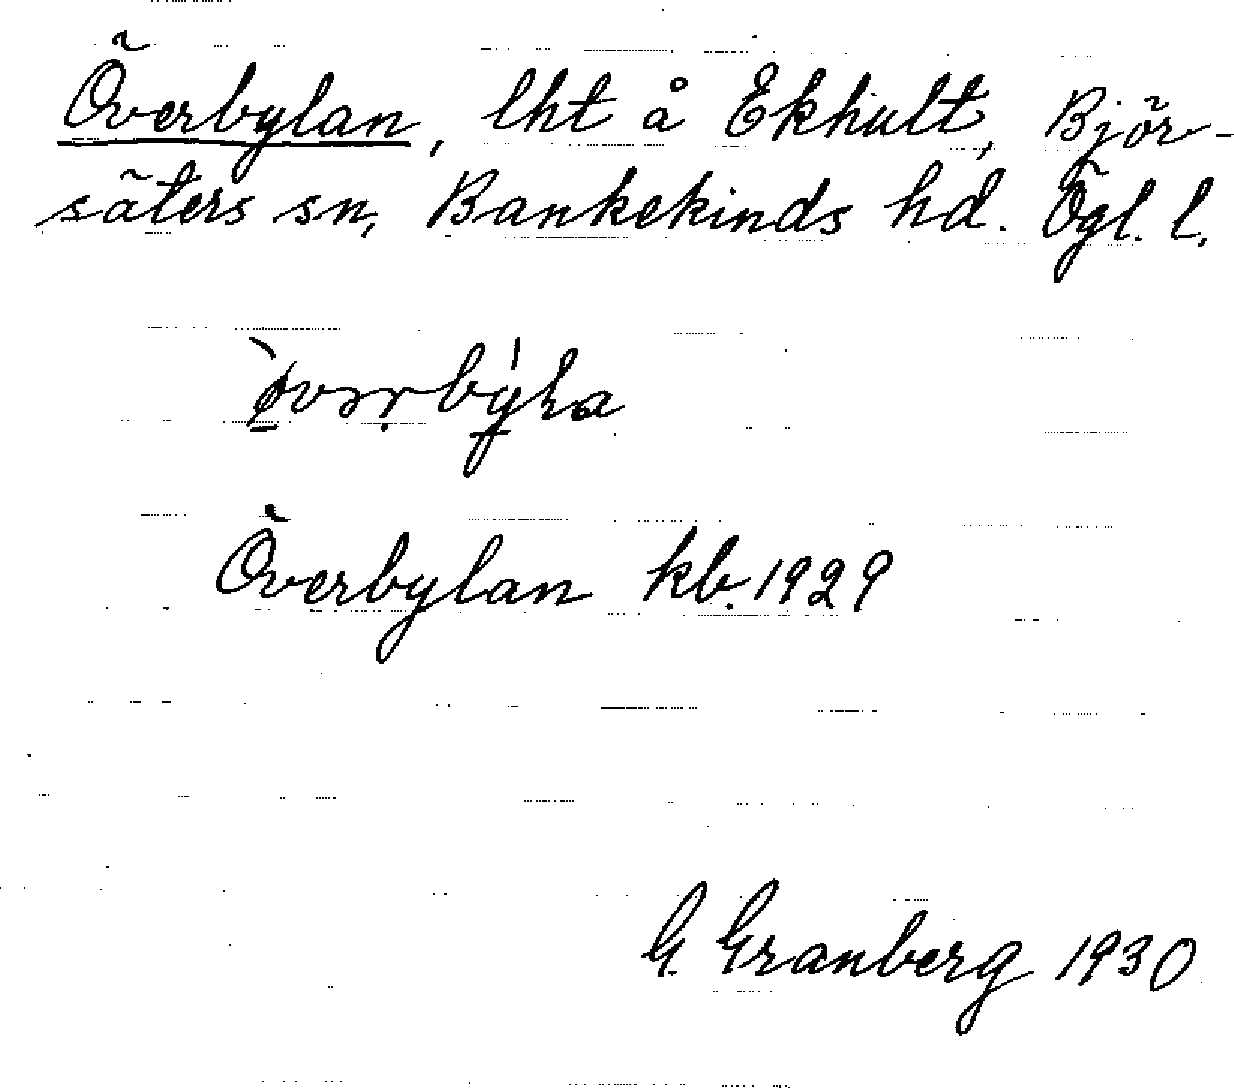 Överbylan, lht å Ekhult, Björ-
säters sn, Bankekinds hd. Ögl. l.
Överbylan kb. 1929
G. Granberg 1930